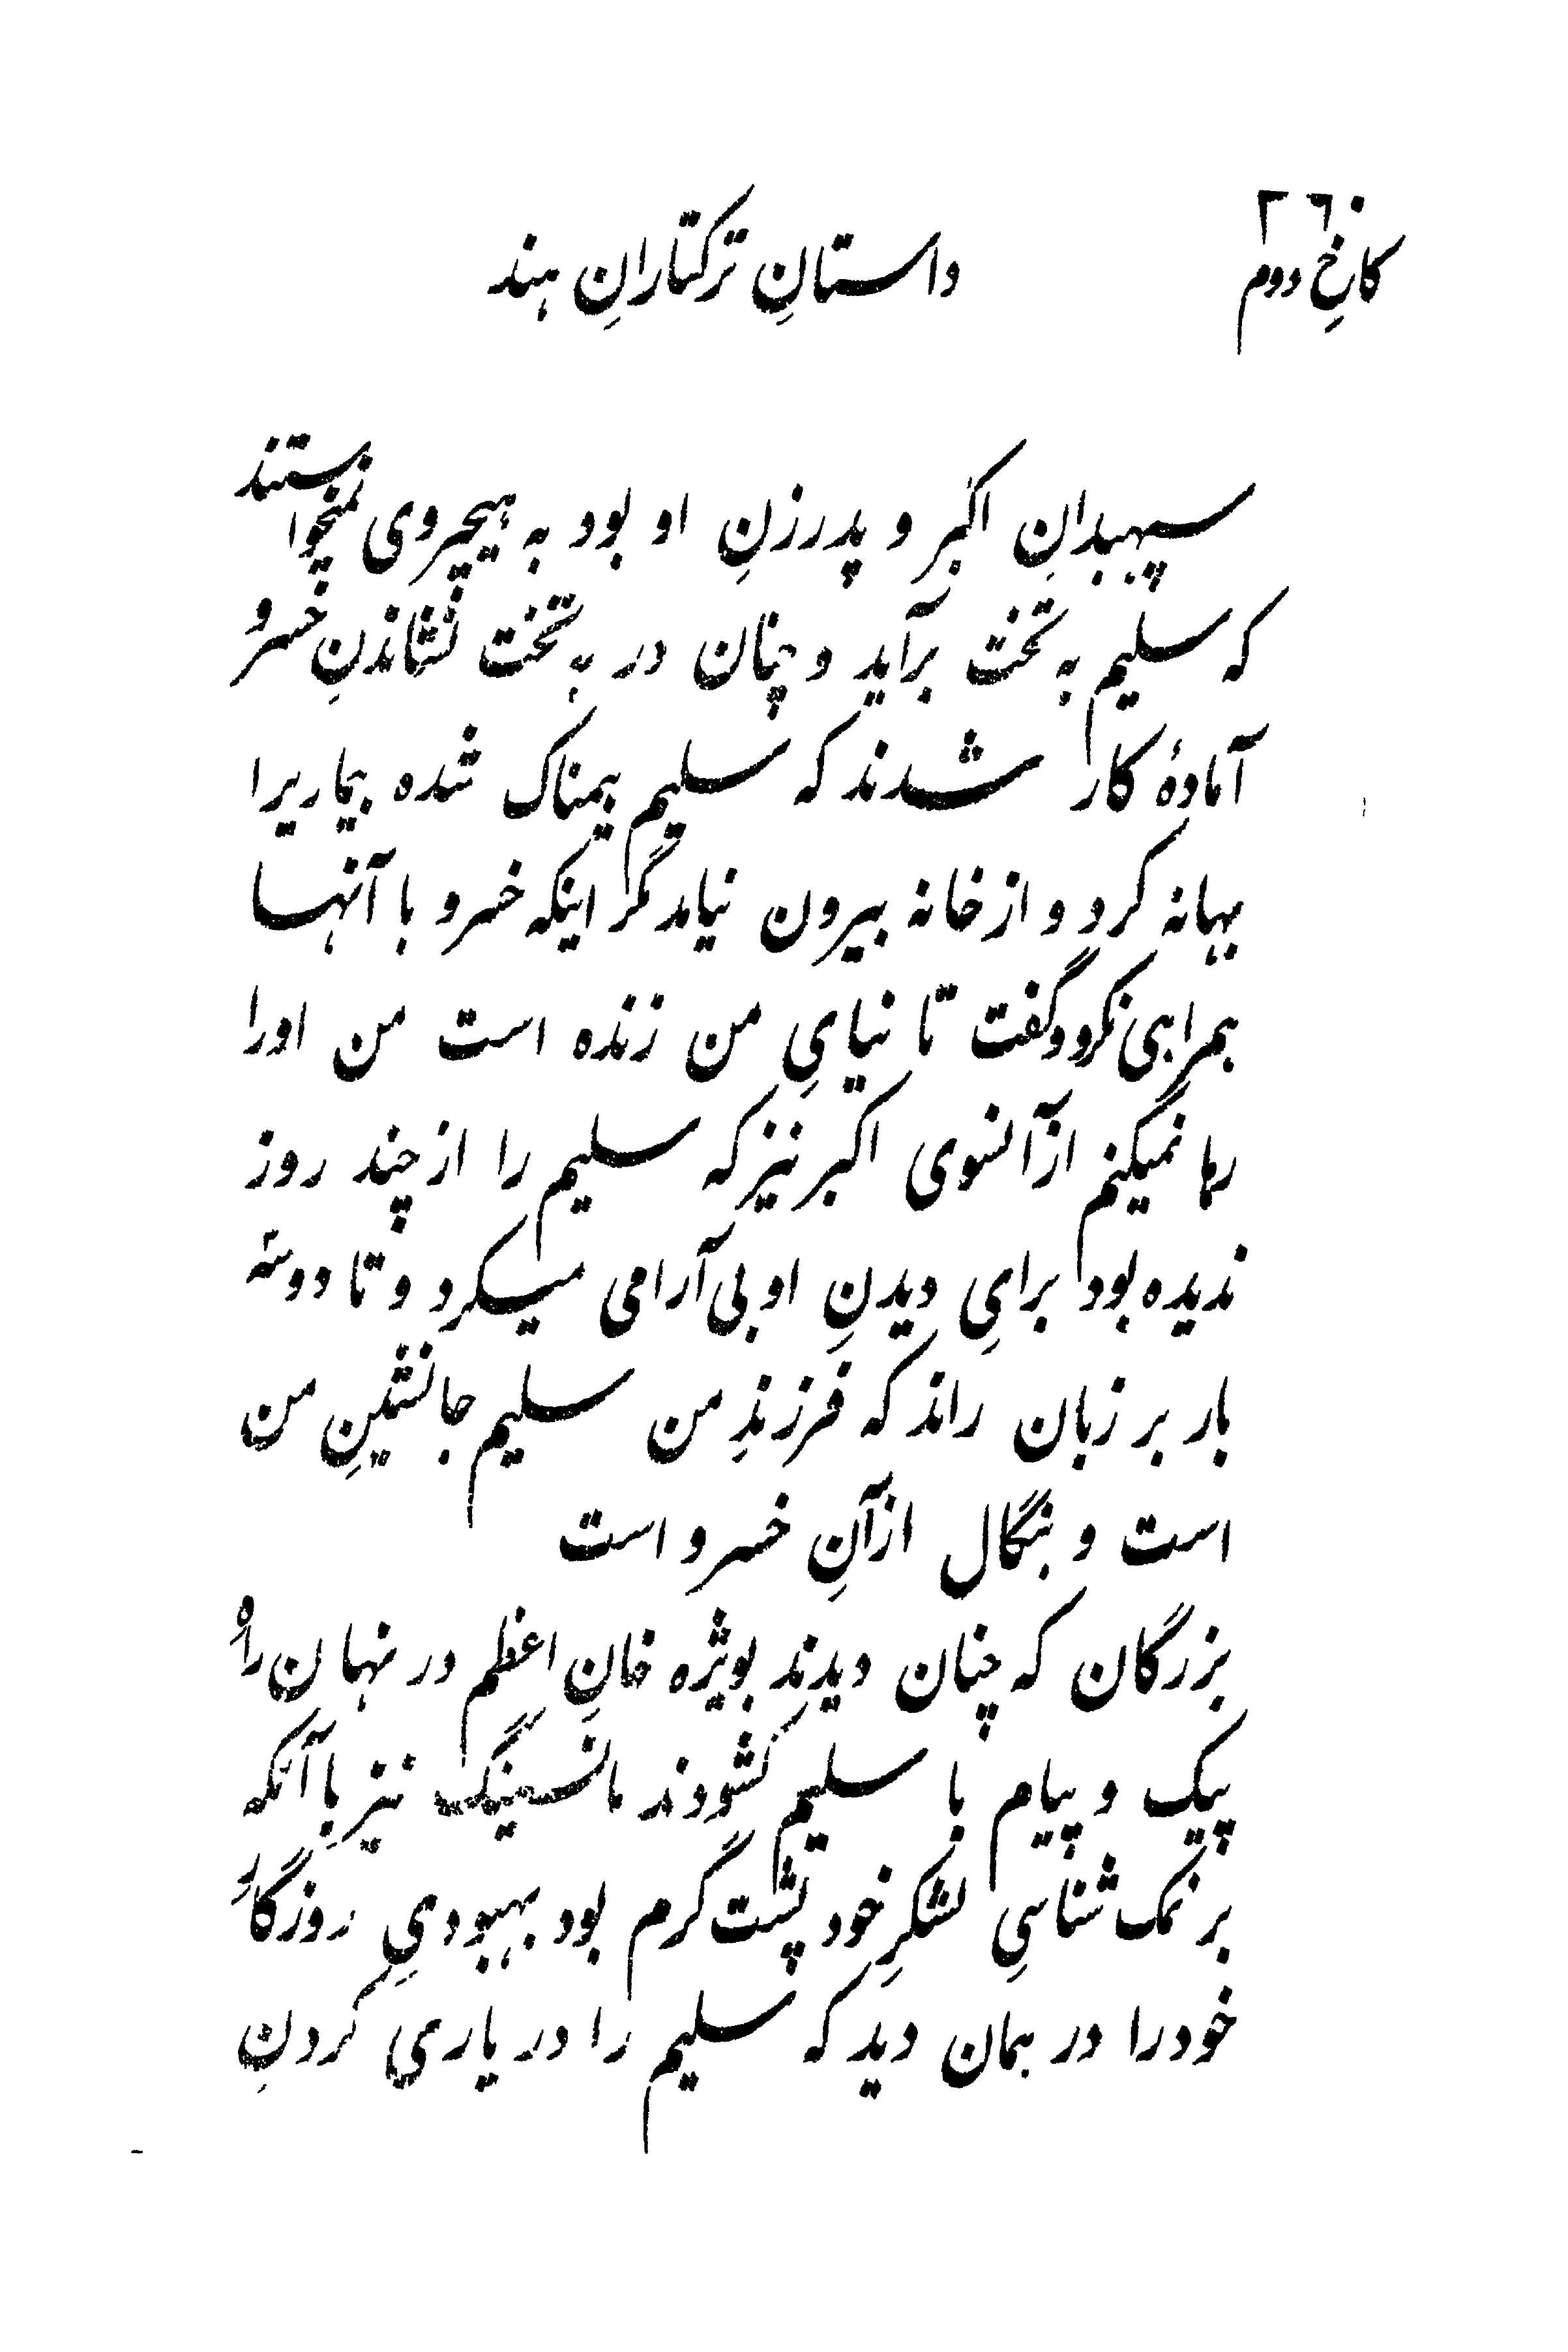 ۲۶۰
کاخِ دوم
داستانِ ترکتازانِ هند
سپهبدانِ اکبر و پدر زنِ او بود به هیچروی نمیخواستند
که سلیم به تخت برآید و چنان در به تخت نشاندنِ خسرو
آمادهٔ کار شدند که سلیم بیمناک شده بیماریرا
بهانه کرد و از خانه بیرون نیامد مگر اینکه خسرو با آنها
همراهی نکرد و گفت تا نیایِ من زنده است من او را
رها نمیکنم از آنسوی اکبر نیز که سلیم را از چند روز
ندیده بود برایِ دیدنِ او بی آرامی میکرد و تا دوسه
بار بر زبان راند که فرزندِ من سلیم جانشینِ من
است و بنگال از آنِ خسرو است
بزرگان که چنان دیدند بویژه خانِ اعظم در نهان راه
پیک و پیام با سلیم کشودند مانسینگ نیز با آنکه
بر نمک شناسیِ لشکرِ خود پشت گرم بود بهبودیِ روزگارِ
خود را در همان دید که سلیم را در یاری کردنِ